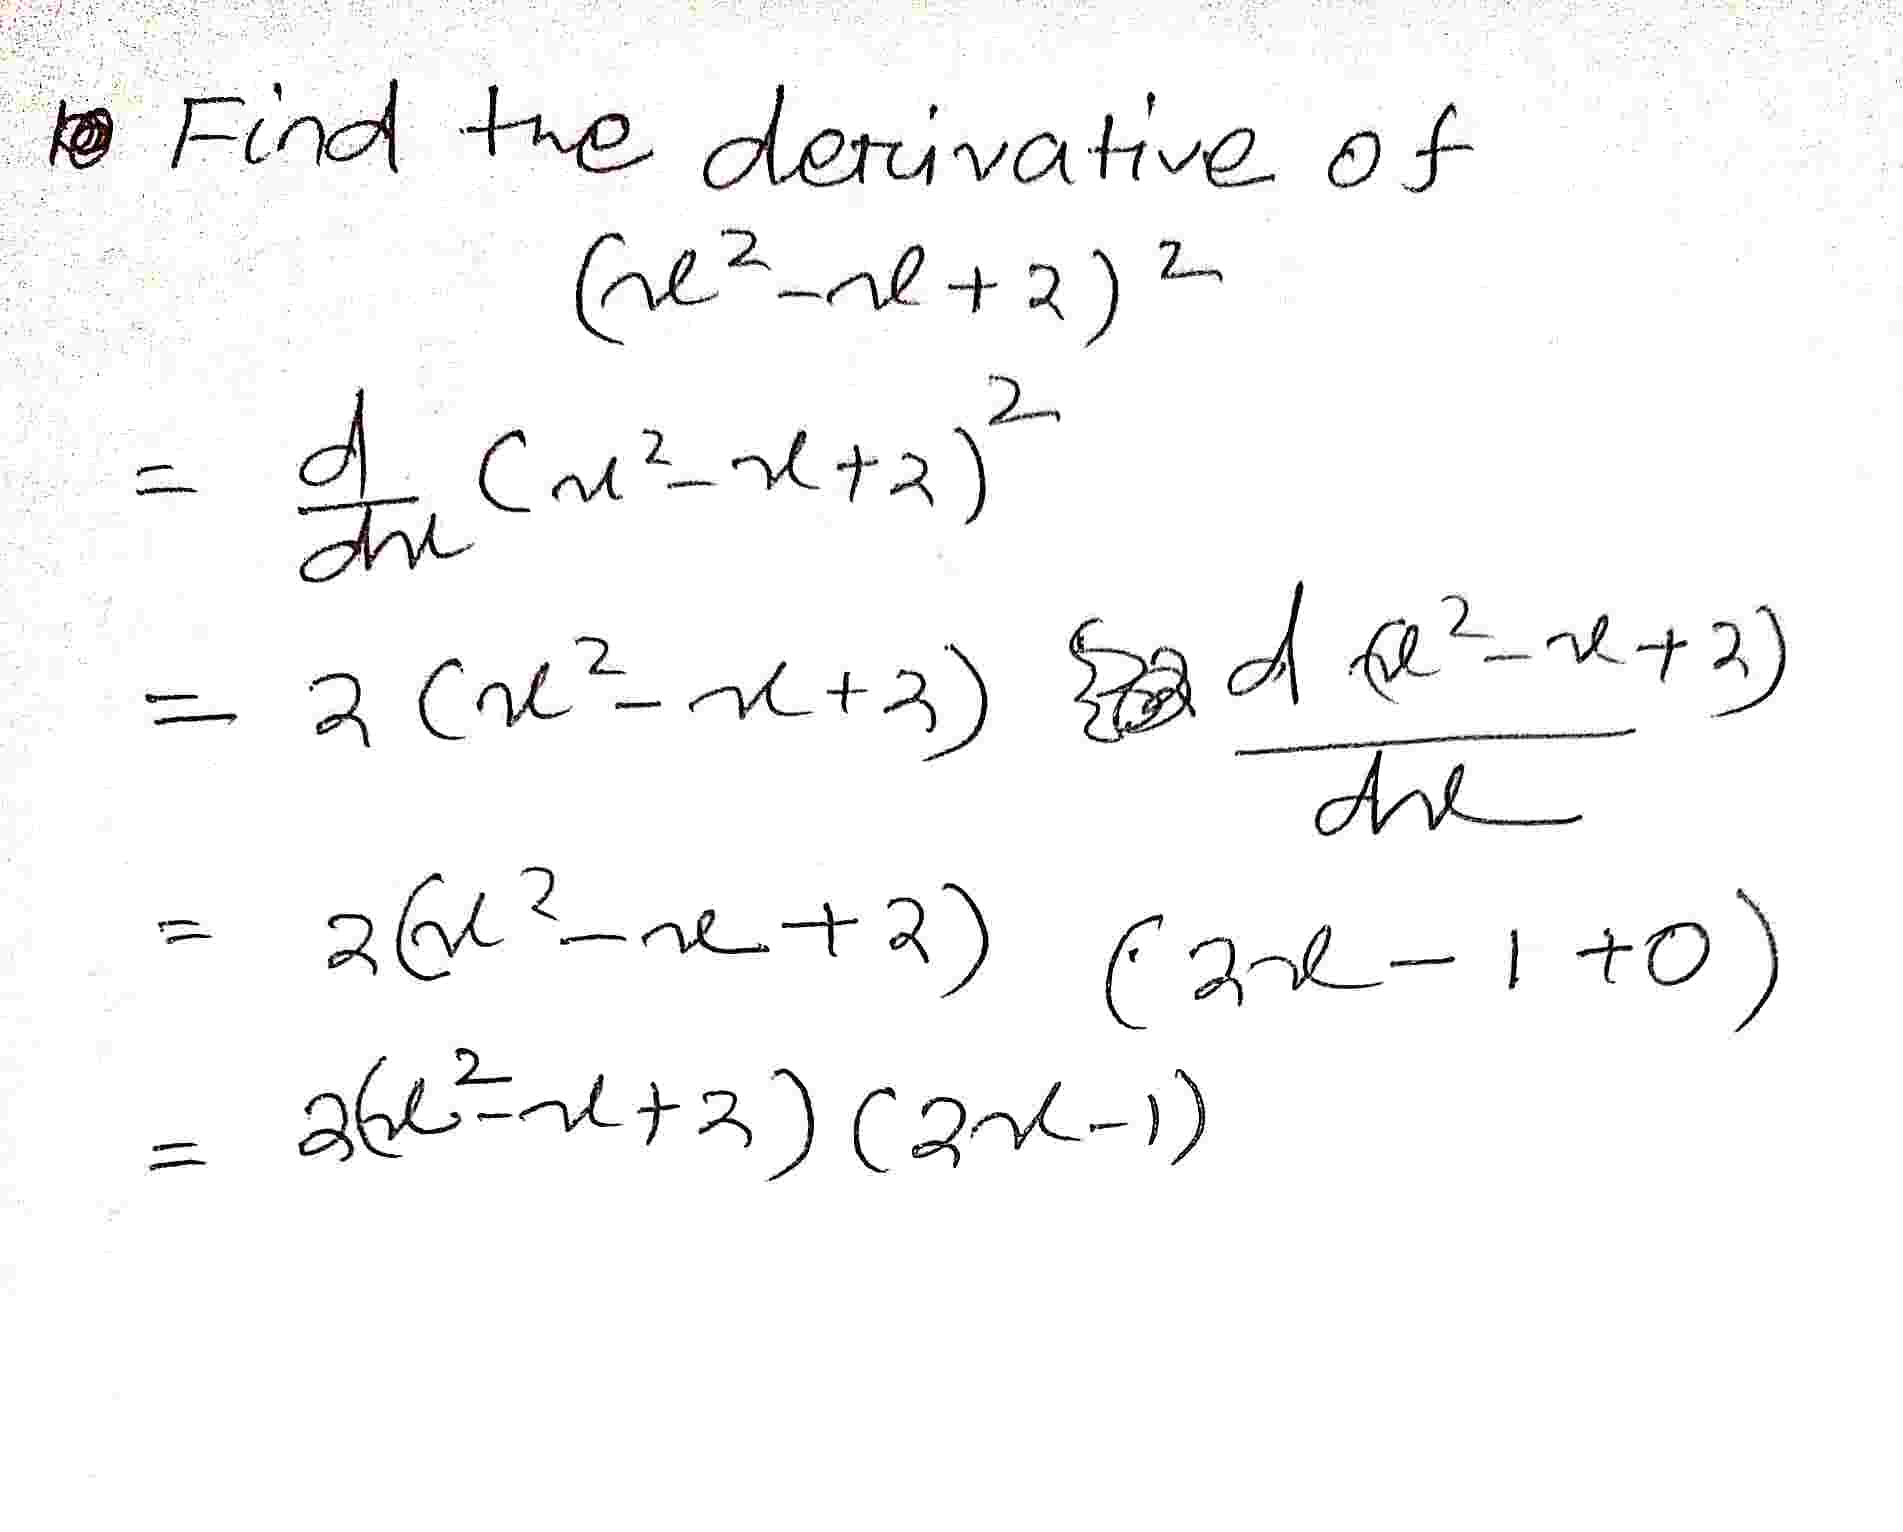 Find the derivative of
(x²-x+2)²
= d/dx (x²-x+2)²
= 2(x²-x+2) d(x²-x+2)/dx
= 2(x²-x+2) (2x-1+0)
= 2(x²-x+2)(2x-1)